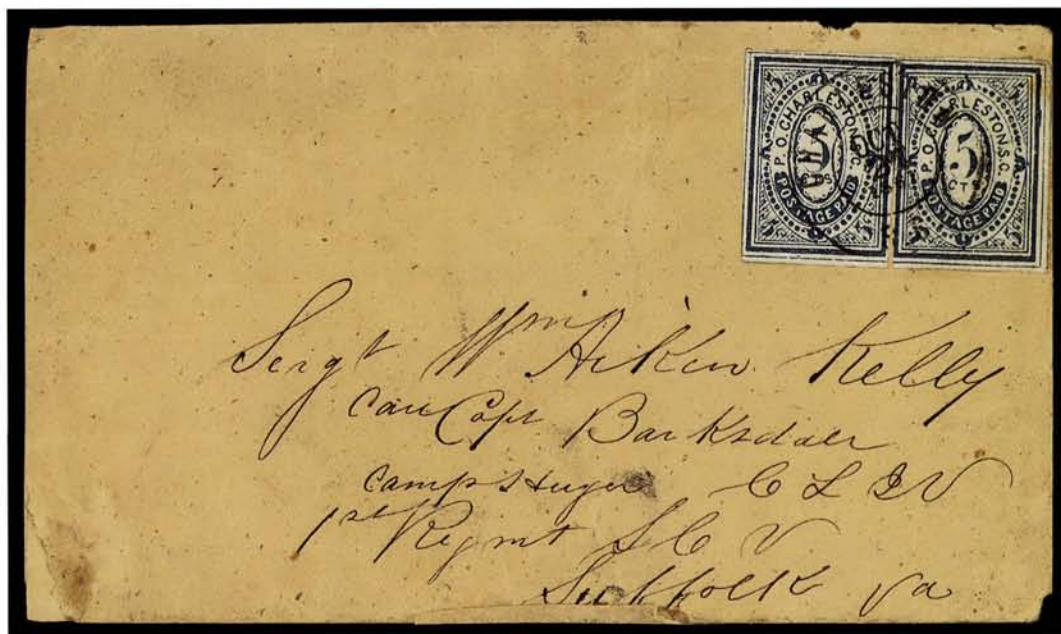 5 5
P.O. CHARLESTON. S.C.
5
POSTAGE PAID
5 5
5 5
P.O. CHARLESTON. S.C.
5
CTS
POSTAGE PAID
5 5
Sergt Wm Aiken Kelly
Care Capt Barksdale
Camp Huger C L I V
1st Regmt S C V
Suffolk Va